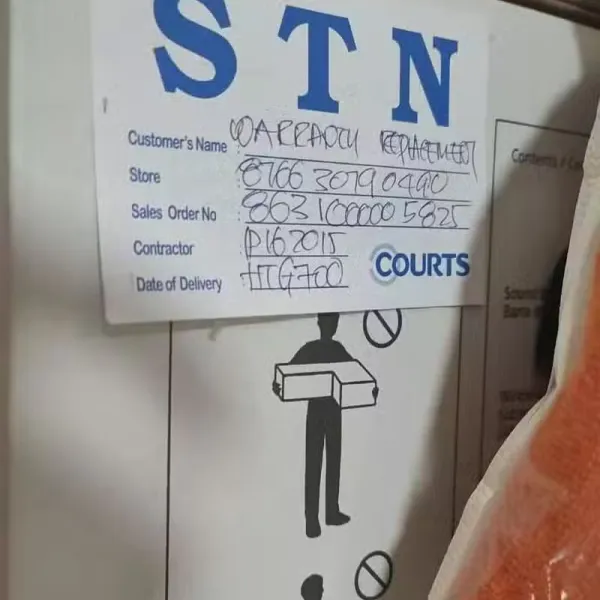 STN
Customer's Name WARRANTY REPLACEMENT
Store : 8766 30790490
Sales Order No : 863 1000005825
Contractor : P162015
Date of Delivery : HTG700
COURTS
Contents
Sound